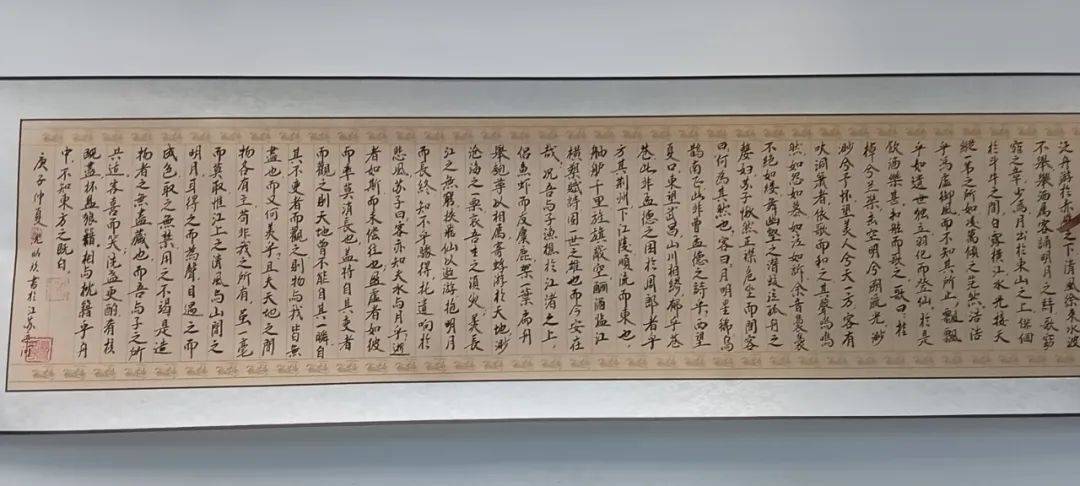 泛舟游於赤之下清風徐來水波
不興舉酒屬客誦明月之詩歌窈
窕之章少焉月出於東山之上徘徊
於斗牛之間白露橫江水光接天
縱一葦之所如凌萬頃之茫然浩浩
乎馮虛御風而不知其所止飄飄
乎如遺世獨立羽化而登仙於是
飲酒樂甚扣舷而歌之歌曰桂
棹兮蘭槳擊空明兮溯流光渺
渺兮予懷望美人兮天一方客有
吹洞簫者依歌而和之其聲嗚嗚
然如怨如慕如泣如訴余音裊裊
不絕如縷舞幽壑之潛蛟泣孤舟之
嫠婦蘇子愀然正襟危坐而問客
曰何為其然也客曰月明星稀烏
鵲南飛此非曹孟德之詩乎西望
夏口東望武昌山川相繆鬱乎蒼
蒼此非孟德之困於周郎者乎
方其荊州下江陵順流而東也
舳艫千里旌旗蔽空釃酒臨江
橫槊賦詩固一世之雄也而今安在
哉況吾與子漁樵於江渚之上
侶魚蝦而友麋鹿駕一葉扁舟
舉匏樽以相屬寄蜉蝣於天地渺
滄海之一粟哀吾生之須臾羨長
江之無窮挾飛仙以遨游抱明月
而長終知不乎驟得托遺響於
悲風蘇子曰客亦知夫水與月乎逝
者如斯而未嘗往也盈虛者如彼
而卒莫消長也蓋將自其變者
而觀之則天地曾不能自其一瞬自
其不變者而觀之則物與我皆無
盡也而又何羨乎且夫天地之間
物各有主苟非我之所有雖一毫
而莫取惟江上之清風與山間之
明月耳得之而為聲目遇之而
成色取之無禁用之不竭是造
物者之無盡藏也而吾與子之所
共適客喜而笑洗盞更酌肴核
既盡杯盤狼藉相與枕藉乎舟
中不知東方之既白
庚子仲夏書於江蘇